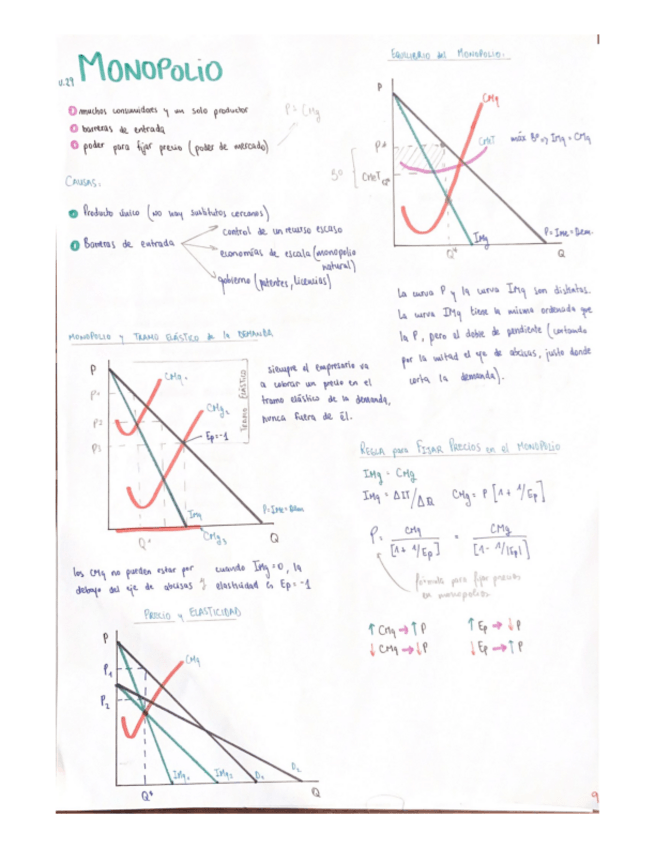 U.29 MONOPOLIO
① muchos consumidores y un solo productor
② barreras de entrada
③ poder para fijar precio (poder de mercado)
P = CMg
CAUSAS:
① Producto único (no hay sustitutos cercanos)
② Barreras de entrada
control de un recurso escaso
economías de escala (monopolio
natural)
gobierno (patentes, licencias)
EQUILIBRIO del MONOPOLIO:
P
CMg
CMeT
máx Bº => IMg = CMg
P*
Bº
CMeT
IMg
P = IMe = Dem.
Q*
Q
La curva P y la curva IMg son distintas.
La curva IMg tiene la misma ordenada que
la P, pero el doble de pendiente (cortando
por la mitad el eje de abcisas, justo donde
corta la demanda).
MONOPOLIO y TRAMO ELÁSTICO de la DEMANDA
P
CMg₁
CMg₂
TRAMO ELÁSTICO
Ep = -1
P2
P3
IMg
P = IMe = Dem
CMg₃
Q*
Q
siempre el empresario va
a cobrar un precio en el
tramo elástico de la demanda,
nunca fuera de él.
los CMg no pueden estar por
debajo del eje de abcisas y
cuando IMg = 0, la
elasticidad es Ep = -1
REGLA para FIJAR PRECIOS en el MONOPOLIO
IMg = CMg
IMg = ΔIT/ΔQ CMg = P [1 + 1/Ep]
P = CMg / [1 + 1/Ep] = CMg / [1 - 1/|Ep|]
fórmula para fijar precios
en monopolios
↑ CMg → ↑ P ↑ Ep → ↓ P
↓ CMg → ↓ P ↓ Ep → ↑ P
PRECIO y ELASTICIDAD
P
CMg
P₁
P₂
IMg₁
IMg₂
D₁
D₂
Q*
Q
9